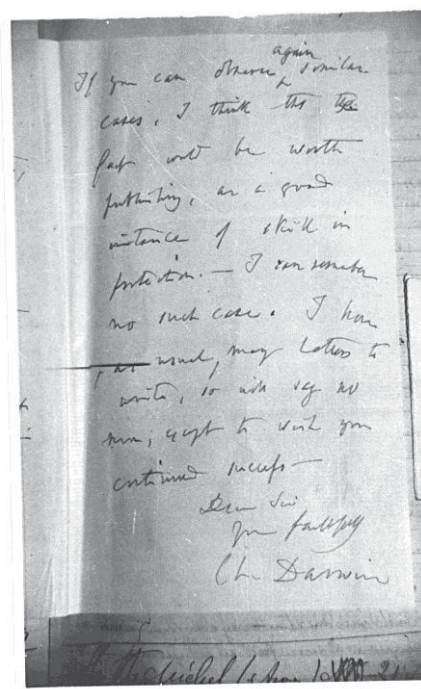 again
If you can observe ^ similar
cases, I think the
fact will be worth
publishing, as a good
instance of skill in
protection. — I can remember
no such case. I have
, as usual, many letters to
write, so will say no
more; except to wish you
continued success —
Dear Sir
Yours faithfully
Ch. Darwin